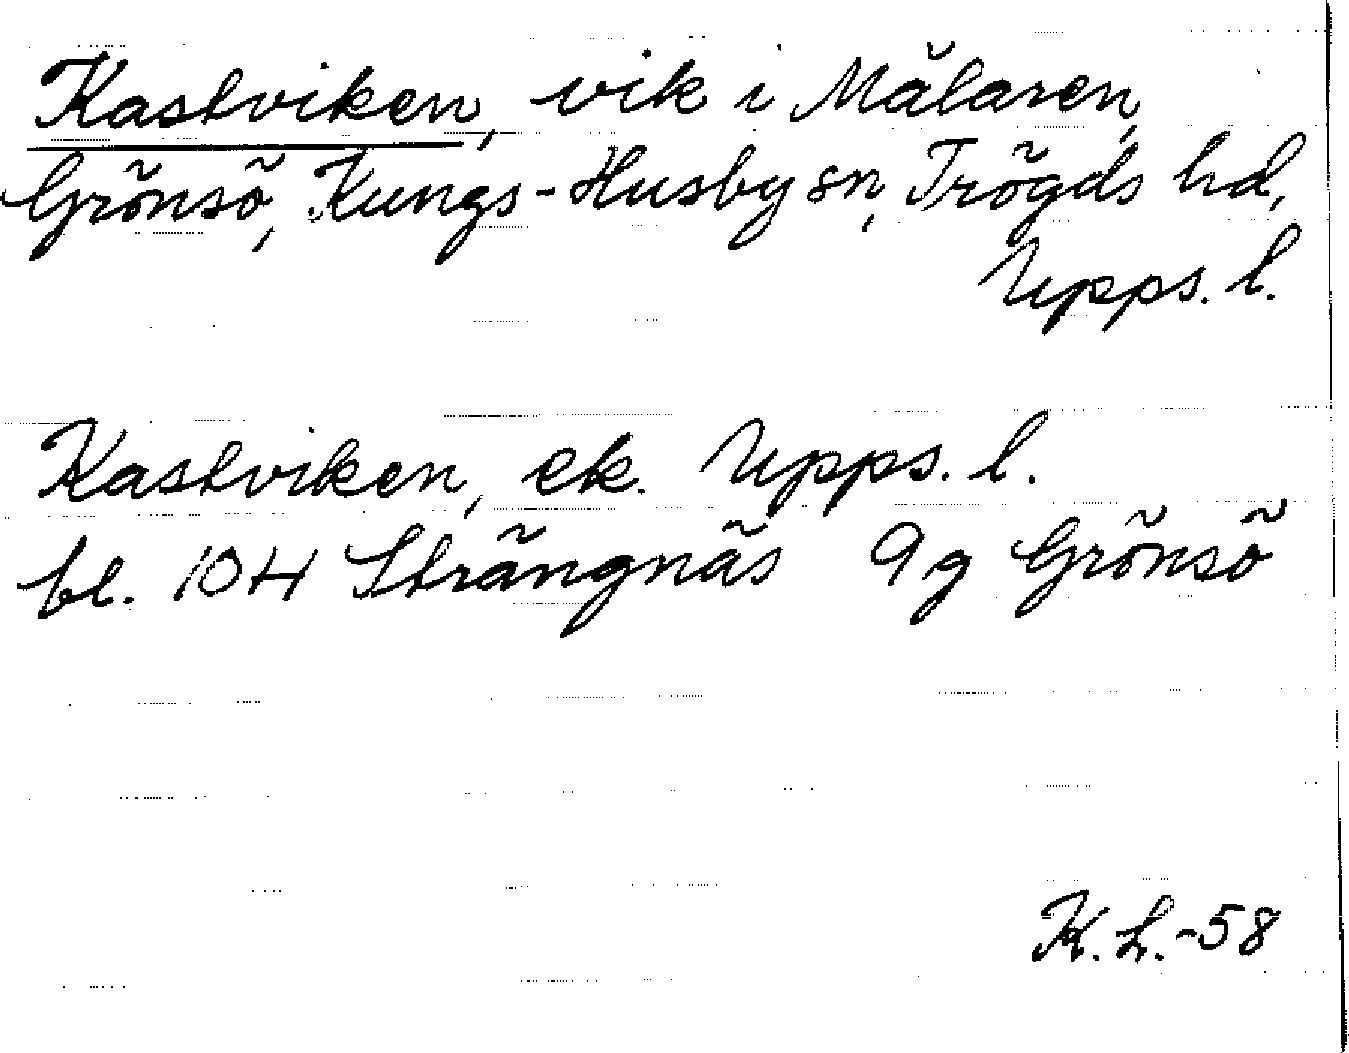 Kastviken, vik i Mälaren,
Grönsö, Kungs-Husby sn, Trögds hd,
Upps. l.
Kastviken, ek. Upps. l.
bl. 10H Strängnäs 9g Grönsö
K.L.-58